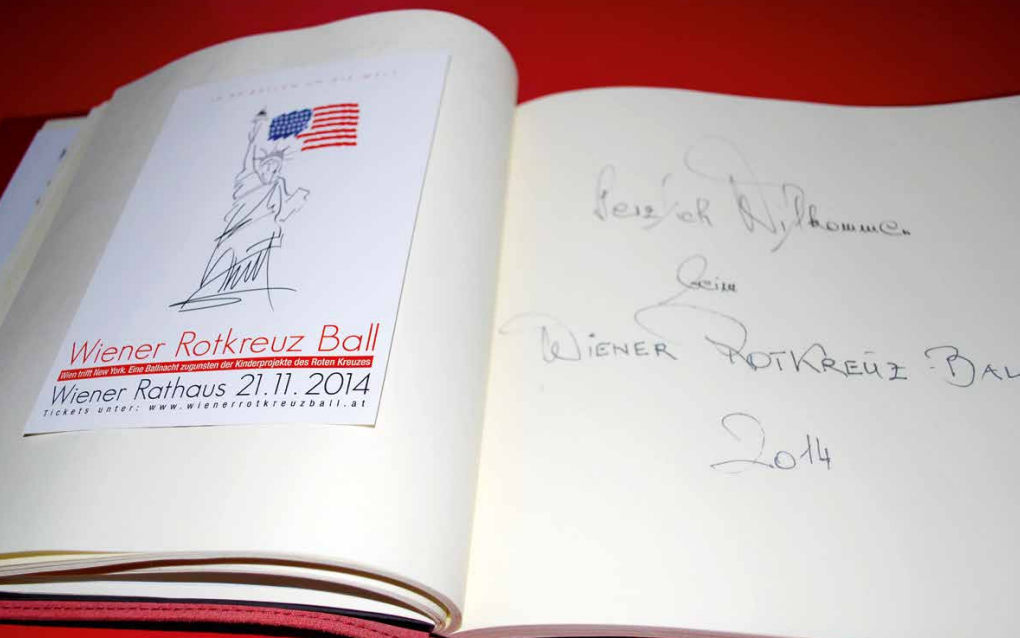 IN 80 BÄLLEN UM DIE WELT
Wiener Rotkreuz Ball
Wien trifft New York. Eine Ballnacht zugunsten der Kinderprojekte des Roten Kreuzes
Wiener Rathaus 21.11.2014
Tickets unter: www.wienerrotkreuzball.at
Herzlich Willkommen
beim
WIENER ROTKREUZ-BAL
2014